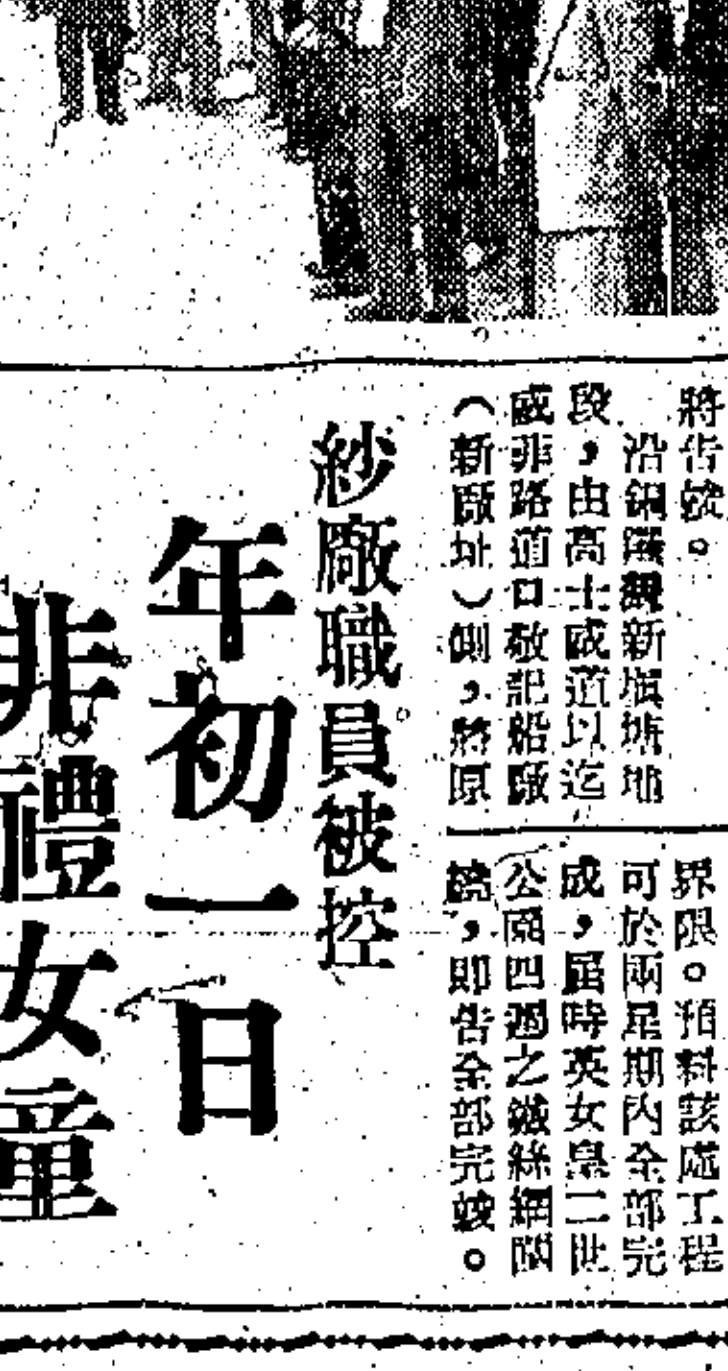 將告竣。
沿銅鑼灣新塡塘地
段，由高士威道以迄
威非路道口敬記船廠
（新廠址）側，將原
界限。預料該處工程
可於兩星期內全部完
成，屆時英女皇二世
公園四週之鐵絲網闗
，即告全部完竣。
紗廠職員被控
年初一日
非禮女童